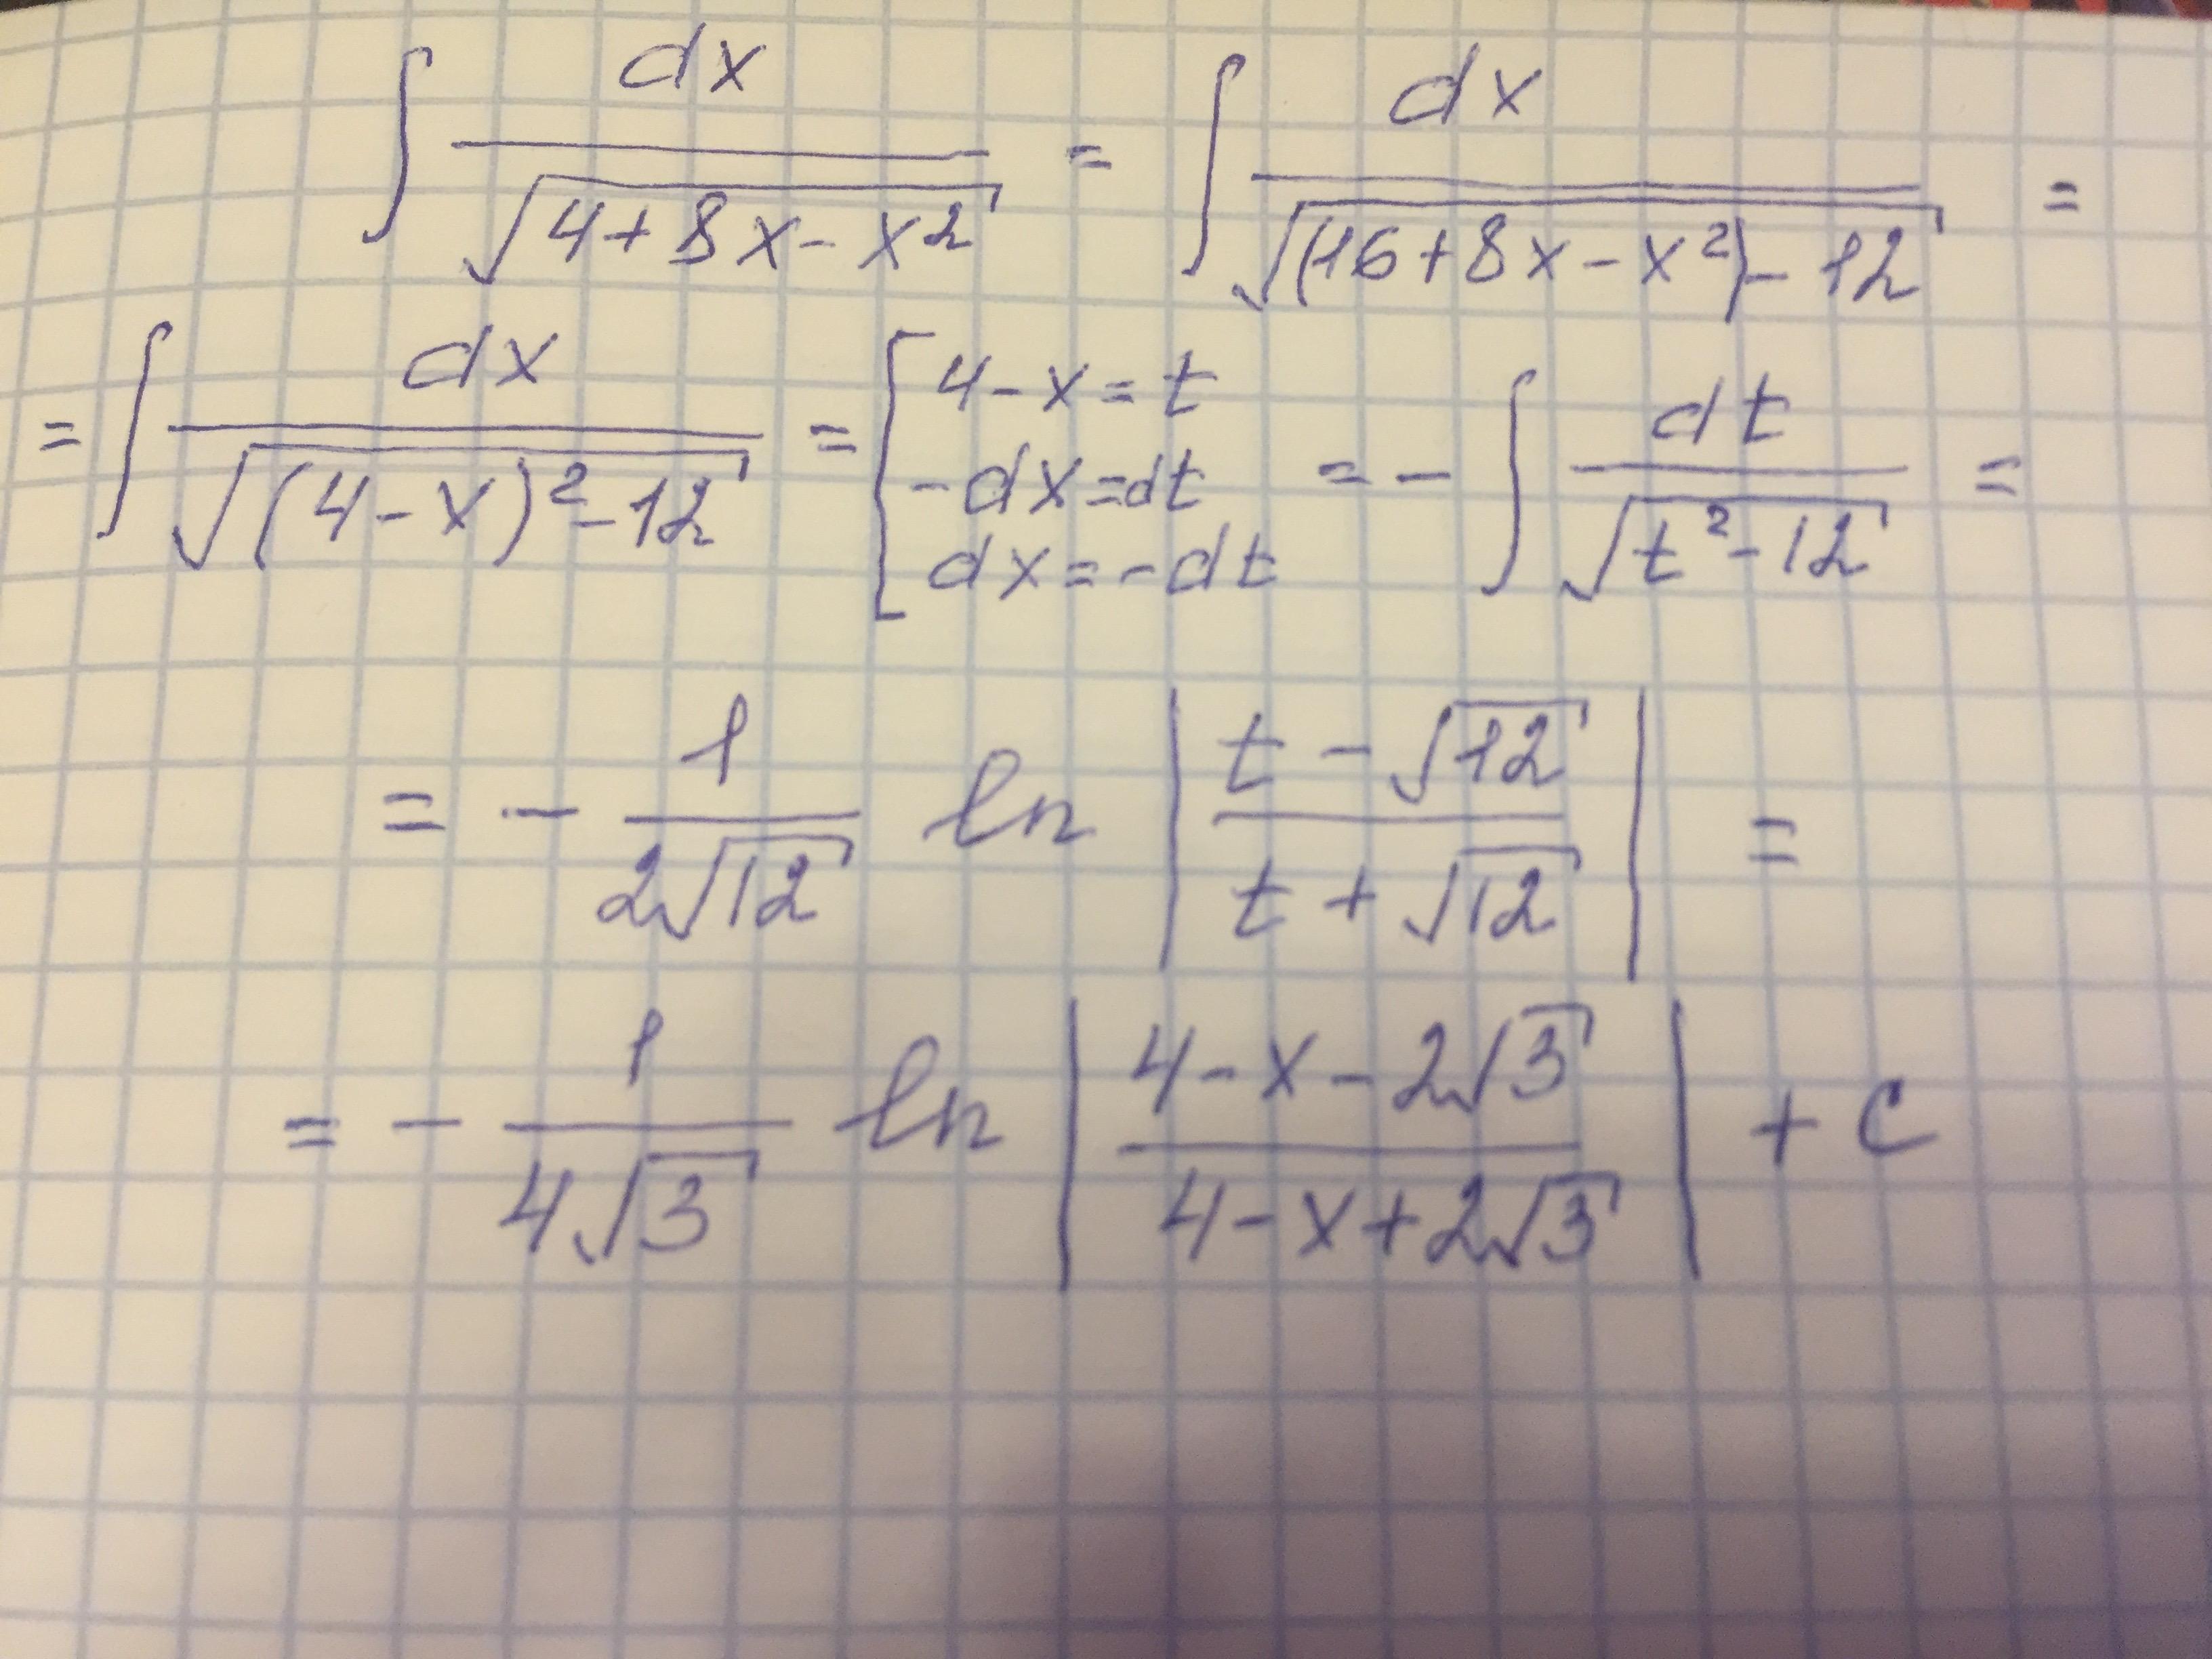 ∫ dx / √(4+8x-x²) = ∫ dx / √((16+8x-x²)-12) =
= ∫ dx / √((4-x)²-12) = [ 4-x=t  -dx=dt  dx=-dt = - ∫ dt / √(t²-12) =
= - 1 / (2√12) ln | (t-√12) / (t+√12) | =
= - 1 / (4√3) ln | (4-x-2√3) / (4-x+2√3) | + C